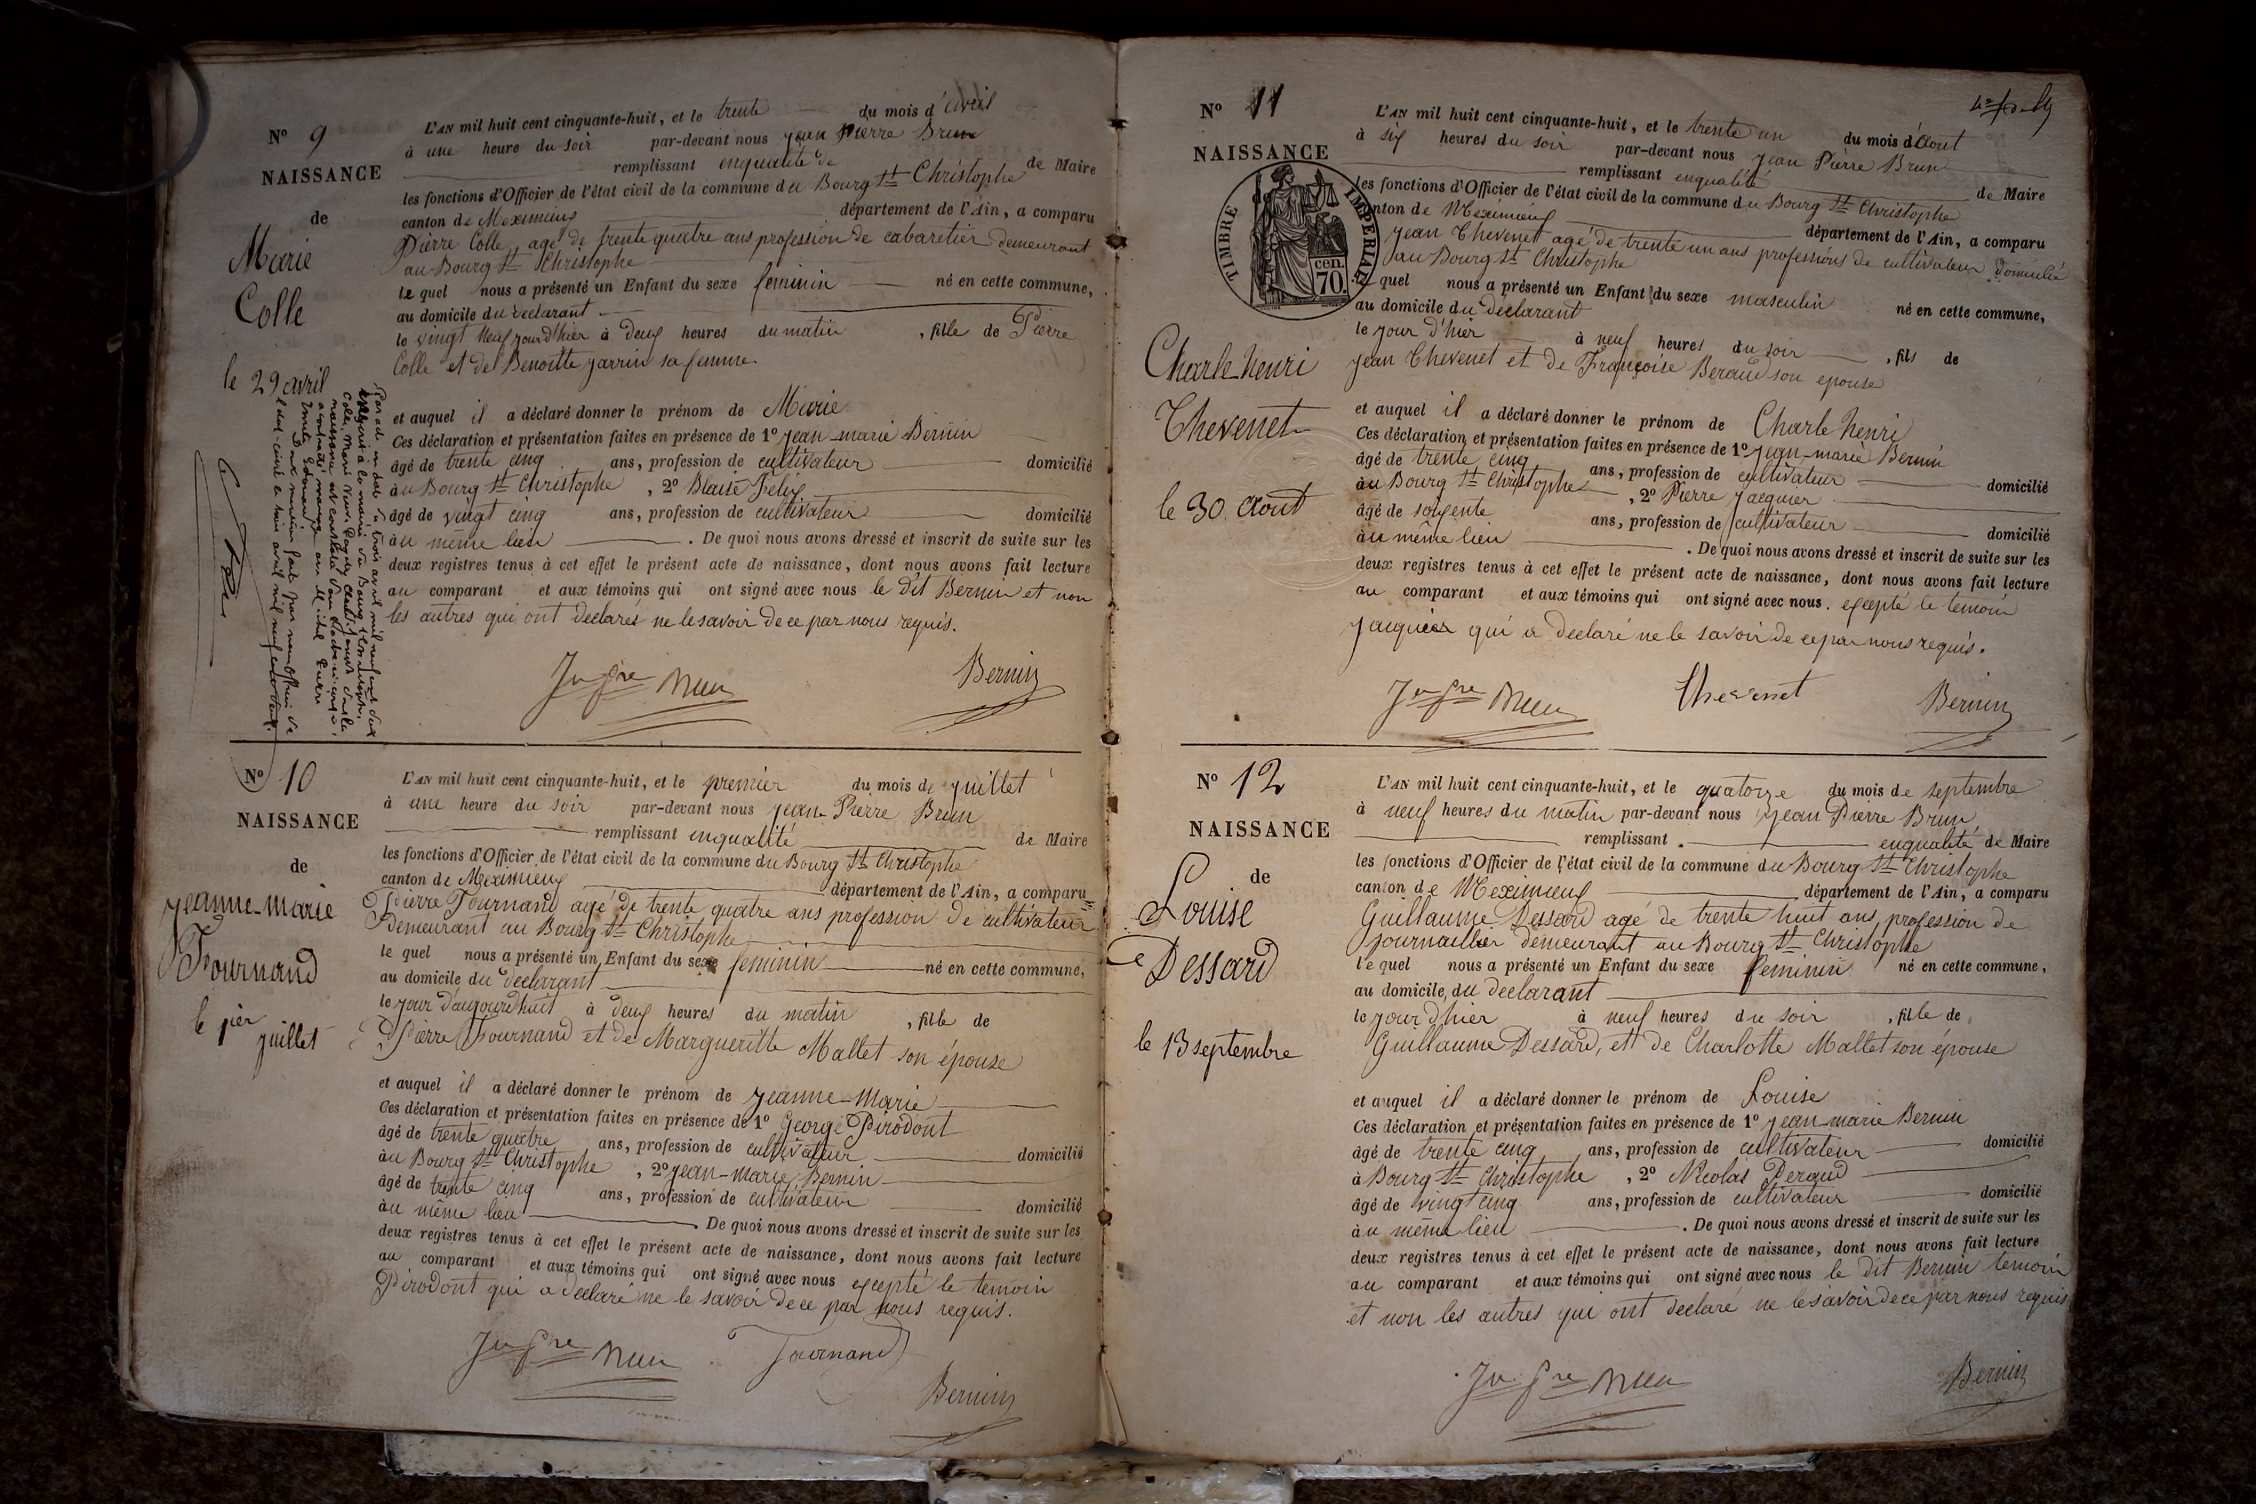 Nº 9
NAISSANCE
de
Marie
Colle
le 29 avril
L'AN mil huit cent cinquante-huit, et le trente du mois d'avril
à une heure du soir par-devant nous jean pierre Brun
remplissant enqualité de de Maire
les fonctions d'Officier de l'état civil de la commune du Bourg St Christophe
canton de Meximieux département de l'Ain, a comparu
Pierre Colle, agé de trente quatre ans profession de cabaretier demeurant
au Bourg St Christophe
le quel nous a présenté un Enfant du sexe feminin né en cette commune,
au domicile du declarant
le vingt neuf jour d'hier à deux heures du matin, fille de Pierre
Colle et de Benoitte jarrin sa femme
et auquel il a déclaré donner le prénom de Marie
Ces déclaration et présentation faites en présence de 1º jean-marie Bernin
âgé de trente cinq ans, profession de cultivateur domicilié
àu Bourg St Christophe, 2º Blaise Felix
âgé de vingt cinq ans, profession de cultivateur domicilié
àu même lieu. De quoi nous avons dressé et inscrit de suite sur les
deux registres tenus à cet effet le présent acte de naissance, dont nous avons fait lecture
au comparant et aux témoins qui ont signé avec nous le dit Bernin et non
les autres qui ont declarés ne le savoir de ce par nous requis.
Jn Pre Brun Bernin
Nº 10
NAISSANCE
de
jeanne-marie
Fournand
le 1ier
juillet
L'AN mil huit cent cinquante-huit, et le premier du mois de juillet
à une heure du soir par-devant nous jean Pierre Brun
remplissant enqualité de Maire
les fonctions d'Officier de l'état civil de la commune du Bourg St Christophe
canton de Meximieux département de l'Ain, a comparu
Pierre Fournand agé de trente quatre ans profession de cultivateur
demeurant au Bourg St Christophe
le quel nous a présenté un Enfant du sexe feminin né en cette commune,
au domicile du declarant
le jour d'aujourdhuit à deux heures du matin, fille de
Pierre Fournand et de Margueritte Mallet son épouse
et auquel il a déclaré donner le prénom de jeanne-marie
Ces déclaration et présentation faites en présence de 1º George Pirodont
âgé de trente quatre ans, profession de cultivateur domicilié
àu Bourg St Christophe, 2º jean-marie Bernin
âgé de trente cinq ans, profession de cultivateur domicilié
àu même lieu. De quoi nous avons dressé et inscrit de suite sur les
deux registres tenus à cet effet le présent acte de naissance, dont nous avons fait lecture
au comparant et aux témoins qui ont signé avec nous excepté le temoin
Pirodont qui a declaré ne le savoir de ce par nous requis.
Jn Pre Brun Fournand
Bernin
Nº 11
NAISSANCE
TIMBRE IMPERIAL
cen.
70.
Charle henri
Thevenet
le 30 Aout
L'AN mil huit cent cinquante-huit, et le trente un du mois d'Aout
à six heures du soir par-devant nous jean Pierre Brun
remplissant enqualité de Maire
les fonctions d'Officier de l'état civil de la commune du Bourg St Christophe
canton de Meximieux département de l'Ain, a comparu
jean Thevenet agé de trente un ans professions de cultivateur domicilié
au Bourg St Christophe
le quel nous a présenté un Enfant du sexe masculin né en cette commune,
au domicile du declarant
le jour d'hier à neuf heures du soir, fils de
jean Thevenet et de Françoise Beraud son epouse
et auquel il a déclaré donner le prénom de Charle henri
Ces déclaration et présentation faites en présence de 1º jean-marie Bernin
âgé de trente cinq ans, profession de cultivateur domicilié
àu Bourg St Christophe, 2º Pierre jacquier
âgé de soixente ans, profession de cultivateur domicilié
àu même lieu. De quoi nous avons dressé et inscrit de suite sur les
deux registres tenus à cet effet le présent acte de naissance, dont nous avons fait lecture
au comparant et aux témoins qui ont signé avec nous. excepté le temoin
jacquier qui a declaré ne le savoir de ce par nous requis.
Jn Pre Brun Thevenet Bernin
Nº 12
NAISSANCE
de
Louise
Dessard
le 13 septembre
L'AN mil huit cent cinquante-huit, et le quatorze du mois de septembre
à neuf heures du matin par-devant nous jean Pierre Brun
remplissant. enqualité de Maire
les fonctions d'Officier de l'état civil de la commune du Bourg St Christophe
canton de Meximieux département de l'Ain, a comparu
Guillaume Dessard agé de trente huit ans, profession de
journaillier demeurant au Bourg St Christophe
le quel nous a présenté un Enfant du sexe feminin né en cette commune,
au domicile du declarant
le jour d'hier à neuf heures du soir, fille de
Guillaume Dessard, et de Charlotte Mallet son épouse
et auquel il a déclaré donner le prénom de Louise
Ces déclaration et présentation faites en présence de 1º jean-marie Bernin
âgé de trente cinq ans, profession de cultivateur domicilié
à Bourg St Christophe, 2º Nicolas Peraud
âgé de vingt cinq ans, profession de cultivateur domicilié
àu même lieu. De quoi nous avons dressé et inscrit de suite sur les
deux registres tenus à cet effet le présent acte de naissance, dont nous avons fait lecture
au comparant et aux témoins qui ont signé avec nous le dit Bernin temoin
et non les autres qui ont declaré ne le savoir de ce par nous requis
Jn Pre Brun Bernin